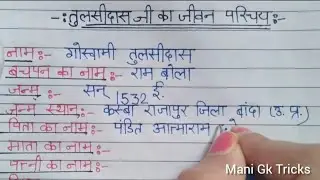 -: तुलसीदास जी का जीवन परिचय :-
नाम :- गोस्वामी तुलसीदास
बचपन का नाम :- राम बोला
जन्म :- सन् 1532 ई.
जन्म स्थान :- कस्बा राजापुर जिला बांदा (उ.प्र.)
पिता का नाम :- पंडित आत्माराम
माता का नाम :-
पत्नी का नाम :-
Mani Gk Tricks